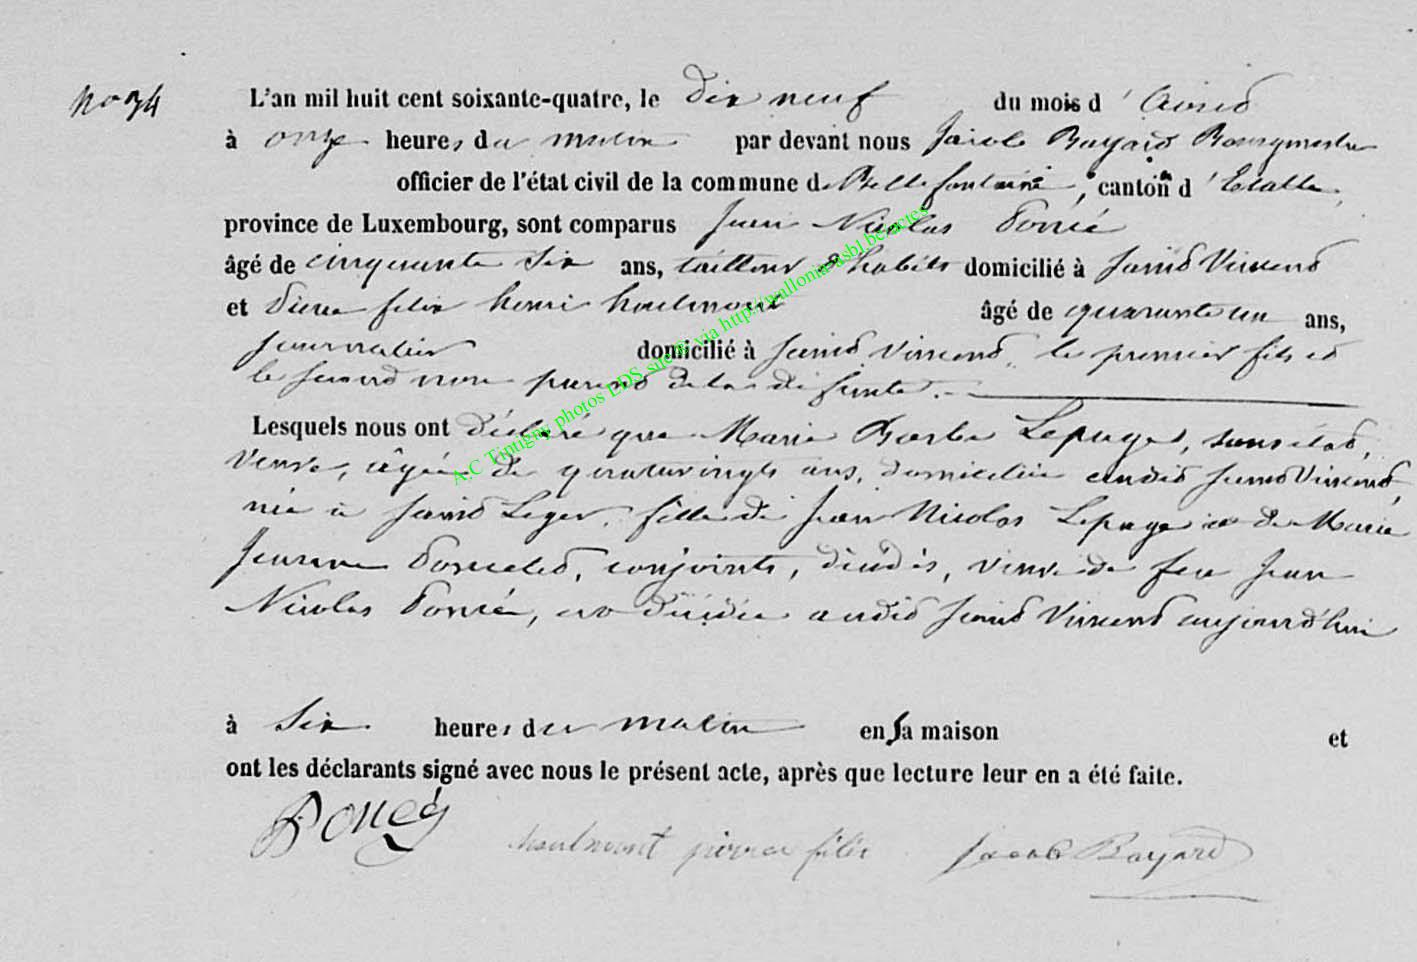 No 34
L'an mil huit cent soixante-quatre, le dix neuf du mois d'avril
à onze heures du matin par devant nous Jacob Bayard Bourgmestre
officier de l'état civil de la commune de Bellefontaine, canton d'Etalle,
province de Luxembourg, sont comparus Jean Nicolas Poncé
âgé de cinquante six ans, tailleur d'habits domicilié à Saint Vincent
et Pierre felix henri houlmont âgé de quarante un ans,
journalier domicilié à Saint Vincent, le premier fils et
le second non parent de la défunte.
Lesquels nous ont déclaré que Marie Barbe Lepage, sans état,
veuve, âgée de quatrevingts ans, domiciliée audit Saint Vincent,
née à Saint Leger, fille de Jean Nicolas Lepage et de Marie
Jeanne, conjoints, décédés, veuve de feu Jean
Nicolas Poncé, est décédée audit Saint Vincent aujourd'hui
à Six heures du matin en sa maison et
ont les déclarants signé avec nous le présent acte, après que lecture leur en a été faite.
Poncé houlmont pierre félix Jacob Bayard
A.C Tintigny photos EDS sare © via http://wallonia-asbl.be/actes